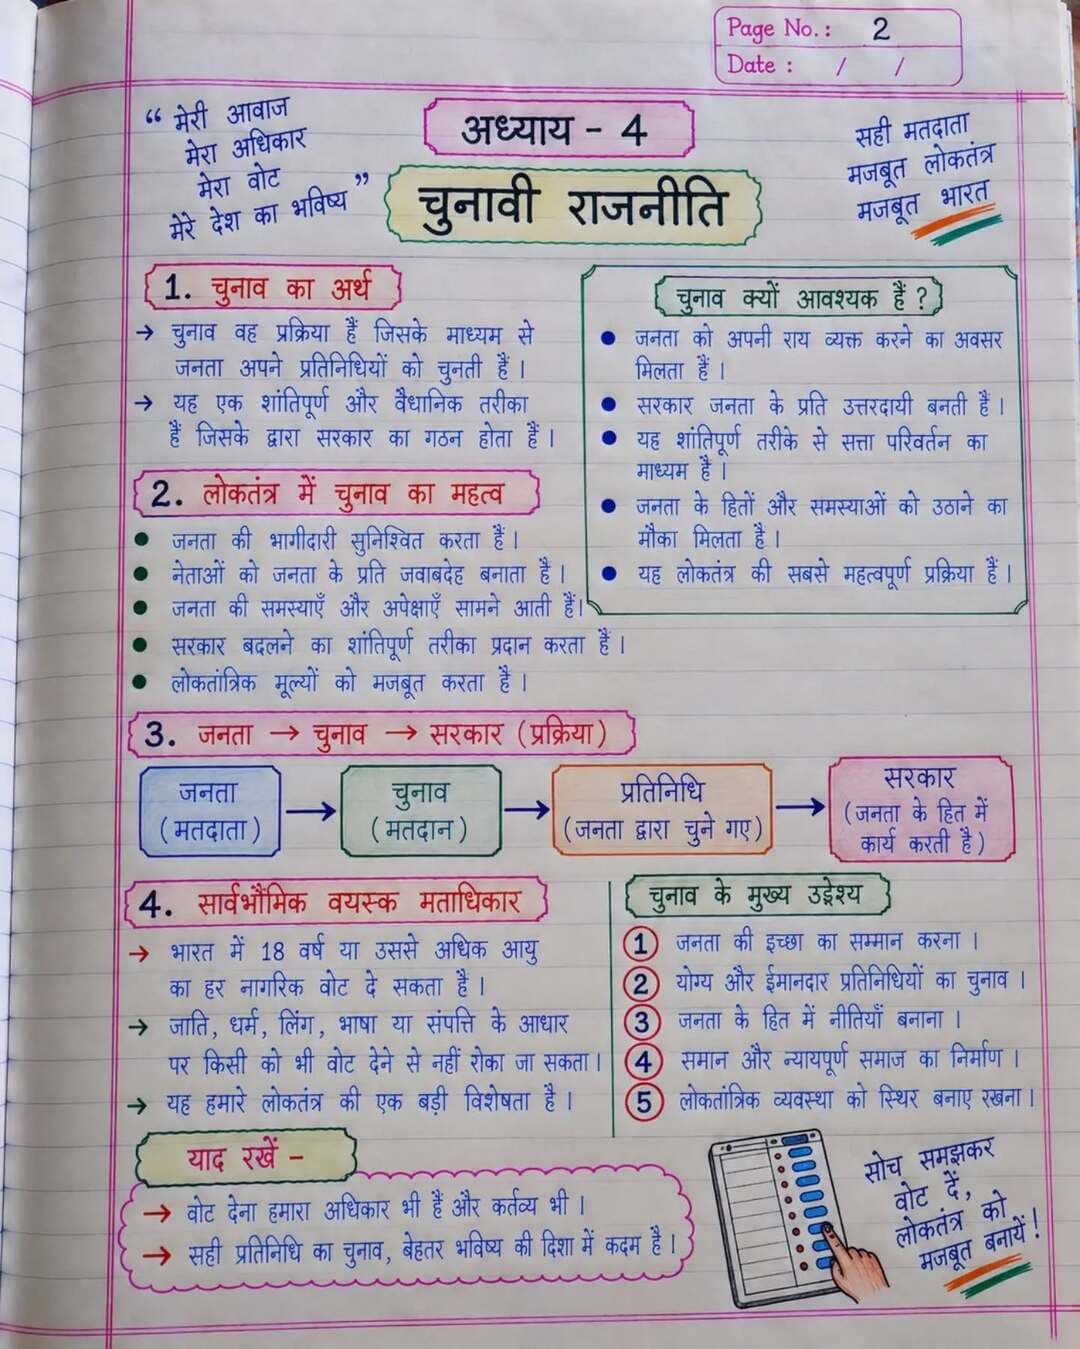 Page No.: 2
Date : / /
“ मेरी आवाज
मेरा अधिकार
मेरा वोट
मेरे देश का भविष्य ”
अध्याय - 4
चुनावी राजनीति
सही मतदाता
मजबूत लोकतंत्र
मजबूत भारत
1. चुनाव का अर्थ
→ चुनाव वह प्रक्रिया हैं जिसके माध्यम से
जनता अपने प्रतिनिधियों को चुनती हैं ।
→ यह एक शांतिपूर्ण और वैधानिक तरीका
हैं जिसके द्वारा सरकार का गठन होता हैं ।
चुनाव क्यों आवश्यक हैं ?
● जनता को अपनी राय व्यक्त करने का अवसर
मिलता हैं ।
● सरकार जनता के प्रति उत्तरदायी बनती हैं ।
● यह शांतिपूर्ण तरीके से सत्ता परिवर्तन का
माध्यम हैं ।
● जनता के हितों और समस्याओं को उठाने का
मौका मिलता है ।
● यह लोकतंत्र की सबसे महत्वपूर्ण प्रक्रिया हैं ।
2. लोकतंत्र में चुनाव का महत्व
● जनता की भागीदारी सुनिश्चित करता हैं ।
● नेताओं को जनता के प्रति जवाबदेह बनाता है ।
● जनता की समस्याएँ और अपेक्षाएँ सामने आती हैं।
● सरकार बदलने का शांतिपूर्ण तरीका प्रदान करता हैं ।
● लोकतांत्रिक मूल्यों को मजबूत करता है ।
3. जनता → चुनाव → सरकार (प्रक्रिया)
जनता
(मतदाता)
चुनाव
(मतदान)
प्रतिनिधि
(जनता द्वारा चुने गए)
सरकार
(जनता के हित में
कार्य करती है)
4. सार्वभौमिक वयस्क मताधिकार
→ भारत में 18 वर्ष या उससे अधिक आयु
का हर नागरिक वोट दे सकता है ।
→ जाति, धर्म, लिंग, भाषा या संपत्ति के आधार
पर किसी को भी वोट देने से नहीं रोका जा सकता ।
→ यह हमारे लोकतंत्र की एक बड़ी विशेषता है ।
चुनाव के मुख्य उद्देश्य
1 जनता की इच्छा का सम्मान करना ।
2 योग्य और ईमानदार प्रतिनिधियों का चुनाव ।
3 जनता के हित में नीतियाँ बनाना ।
4 समान और न्यायपूर्ण समाज का निर्माण ।
5 लोकतांत्रिक व्यवस्था को स्थिर बनाए रखना ।
याद रखें -
→ वोट देना हमारा अधिकार भी हैं और कर्तव्य भी ।
→ सही प्रतिनिधि का चुनाव, बेहतर भविष्य की दिशा में कदम है ।
सोच समझकर
वोट दें,
लोकतंत्र को
मजबूत बनायें !